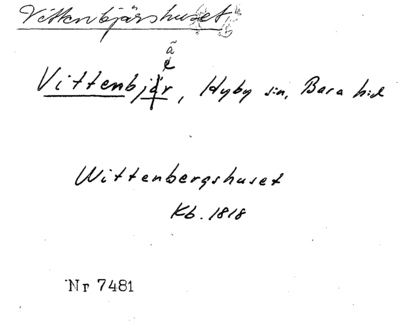 Vittenbjärshuset
ä
Vittenbjär, Hyby sn, Bara hd
Wittenbergshuset
Kb. 1818
Nr 7481